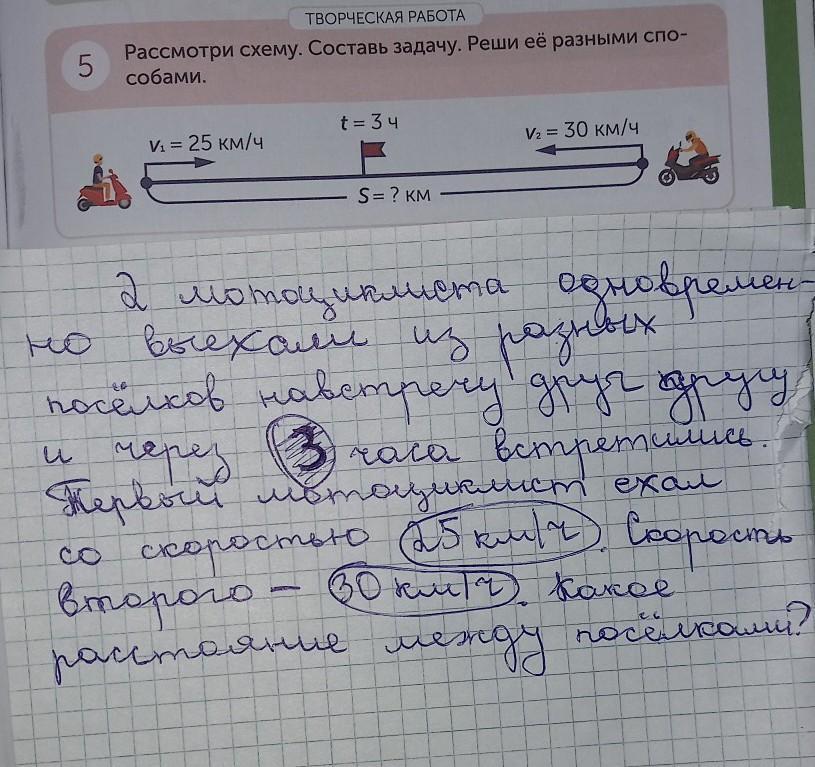 ТВОРЧЕСКАЯ РАБОТА
5 Рассмотри схему. Составь задачу. Реши её разными спо-
собами.
v₁ = 25 км/ч
t = 3 ч
v₂ = 30 км/ч
S = ? км
2 мотоциклиста одновремен-
но выехали из разных
посёлков навстречу друг другу
и через 3 часа встретились.
Первый мотоциклист ехал
со скоростью 25 км/ч. Скорость
второго – 30 км/ч. Какое
расстояние между посёлками?